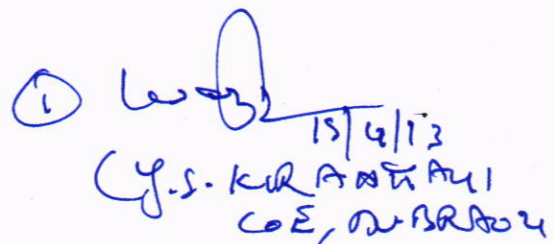 ①
15/4/13
(Y.S. KIRANMAYI
COE, Dr. BRAOU